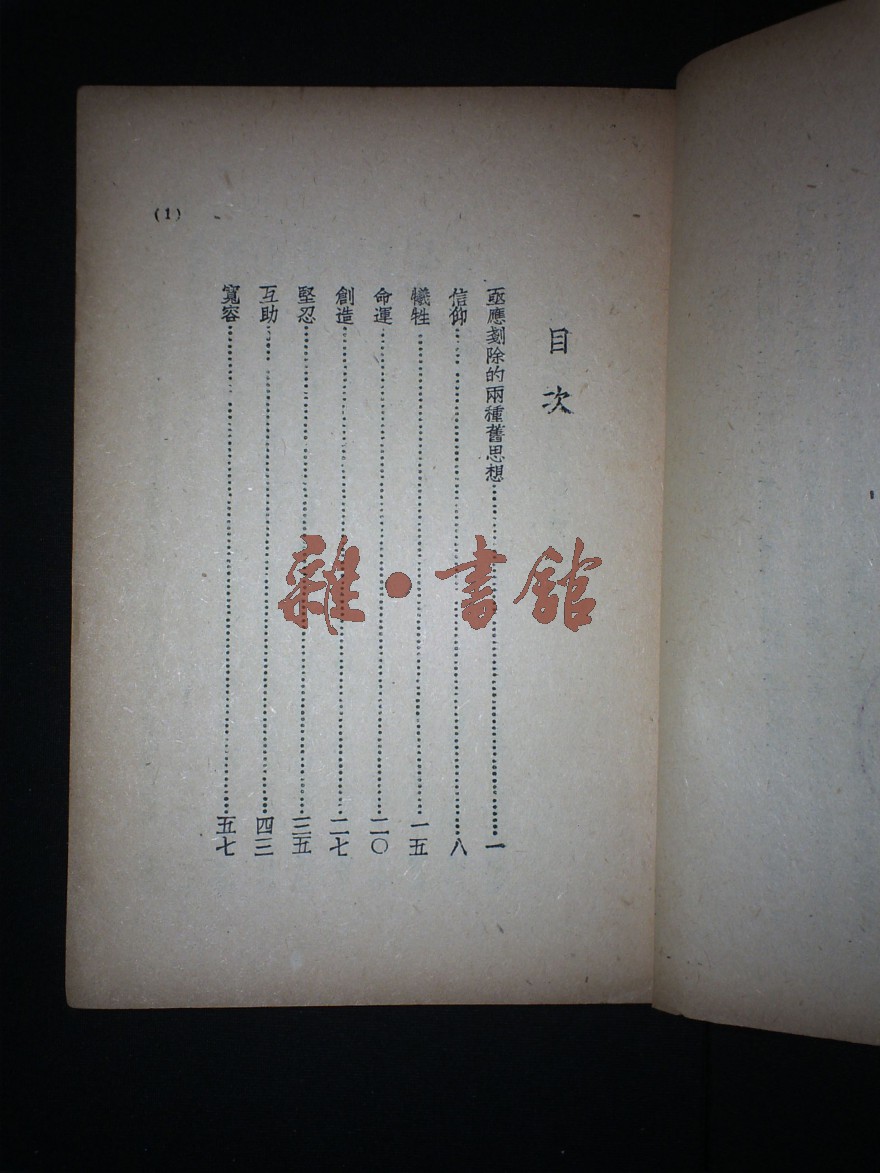 目次
亟應剗除的兩種舊思想……一
信仰……八
犧牲……一五
命運……二〇
創造……二七
堅忍……三五
互助……四三
寬容……五七
(1)
雜·書館